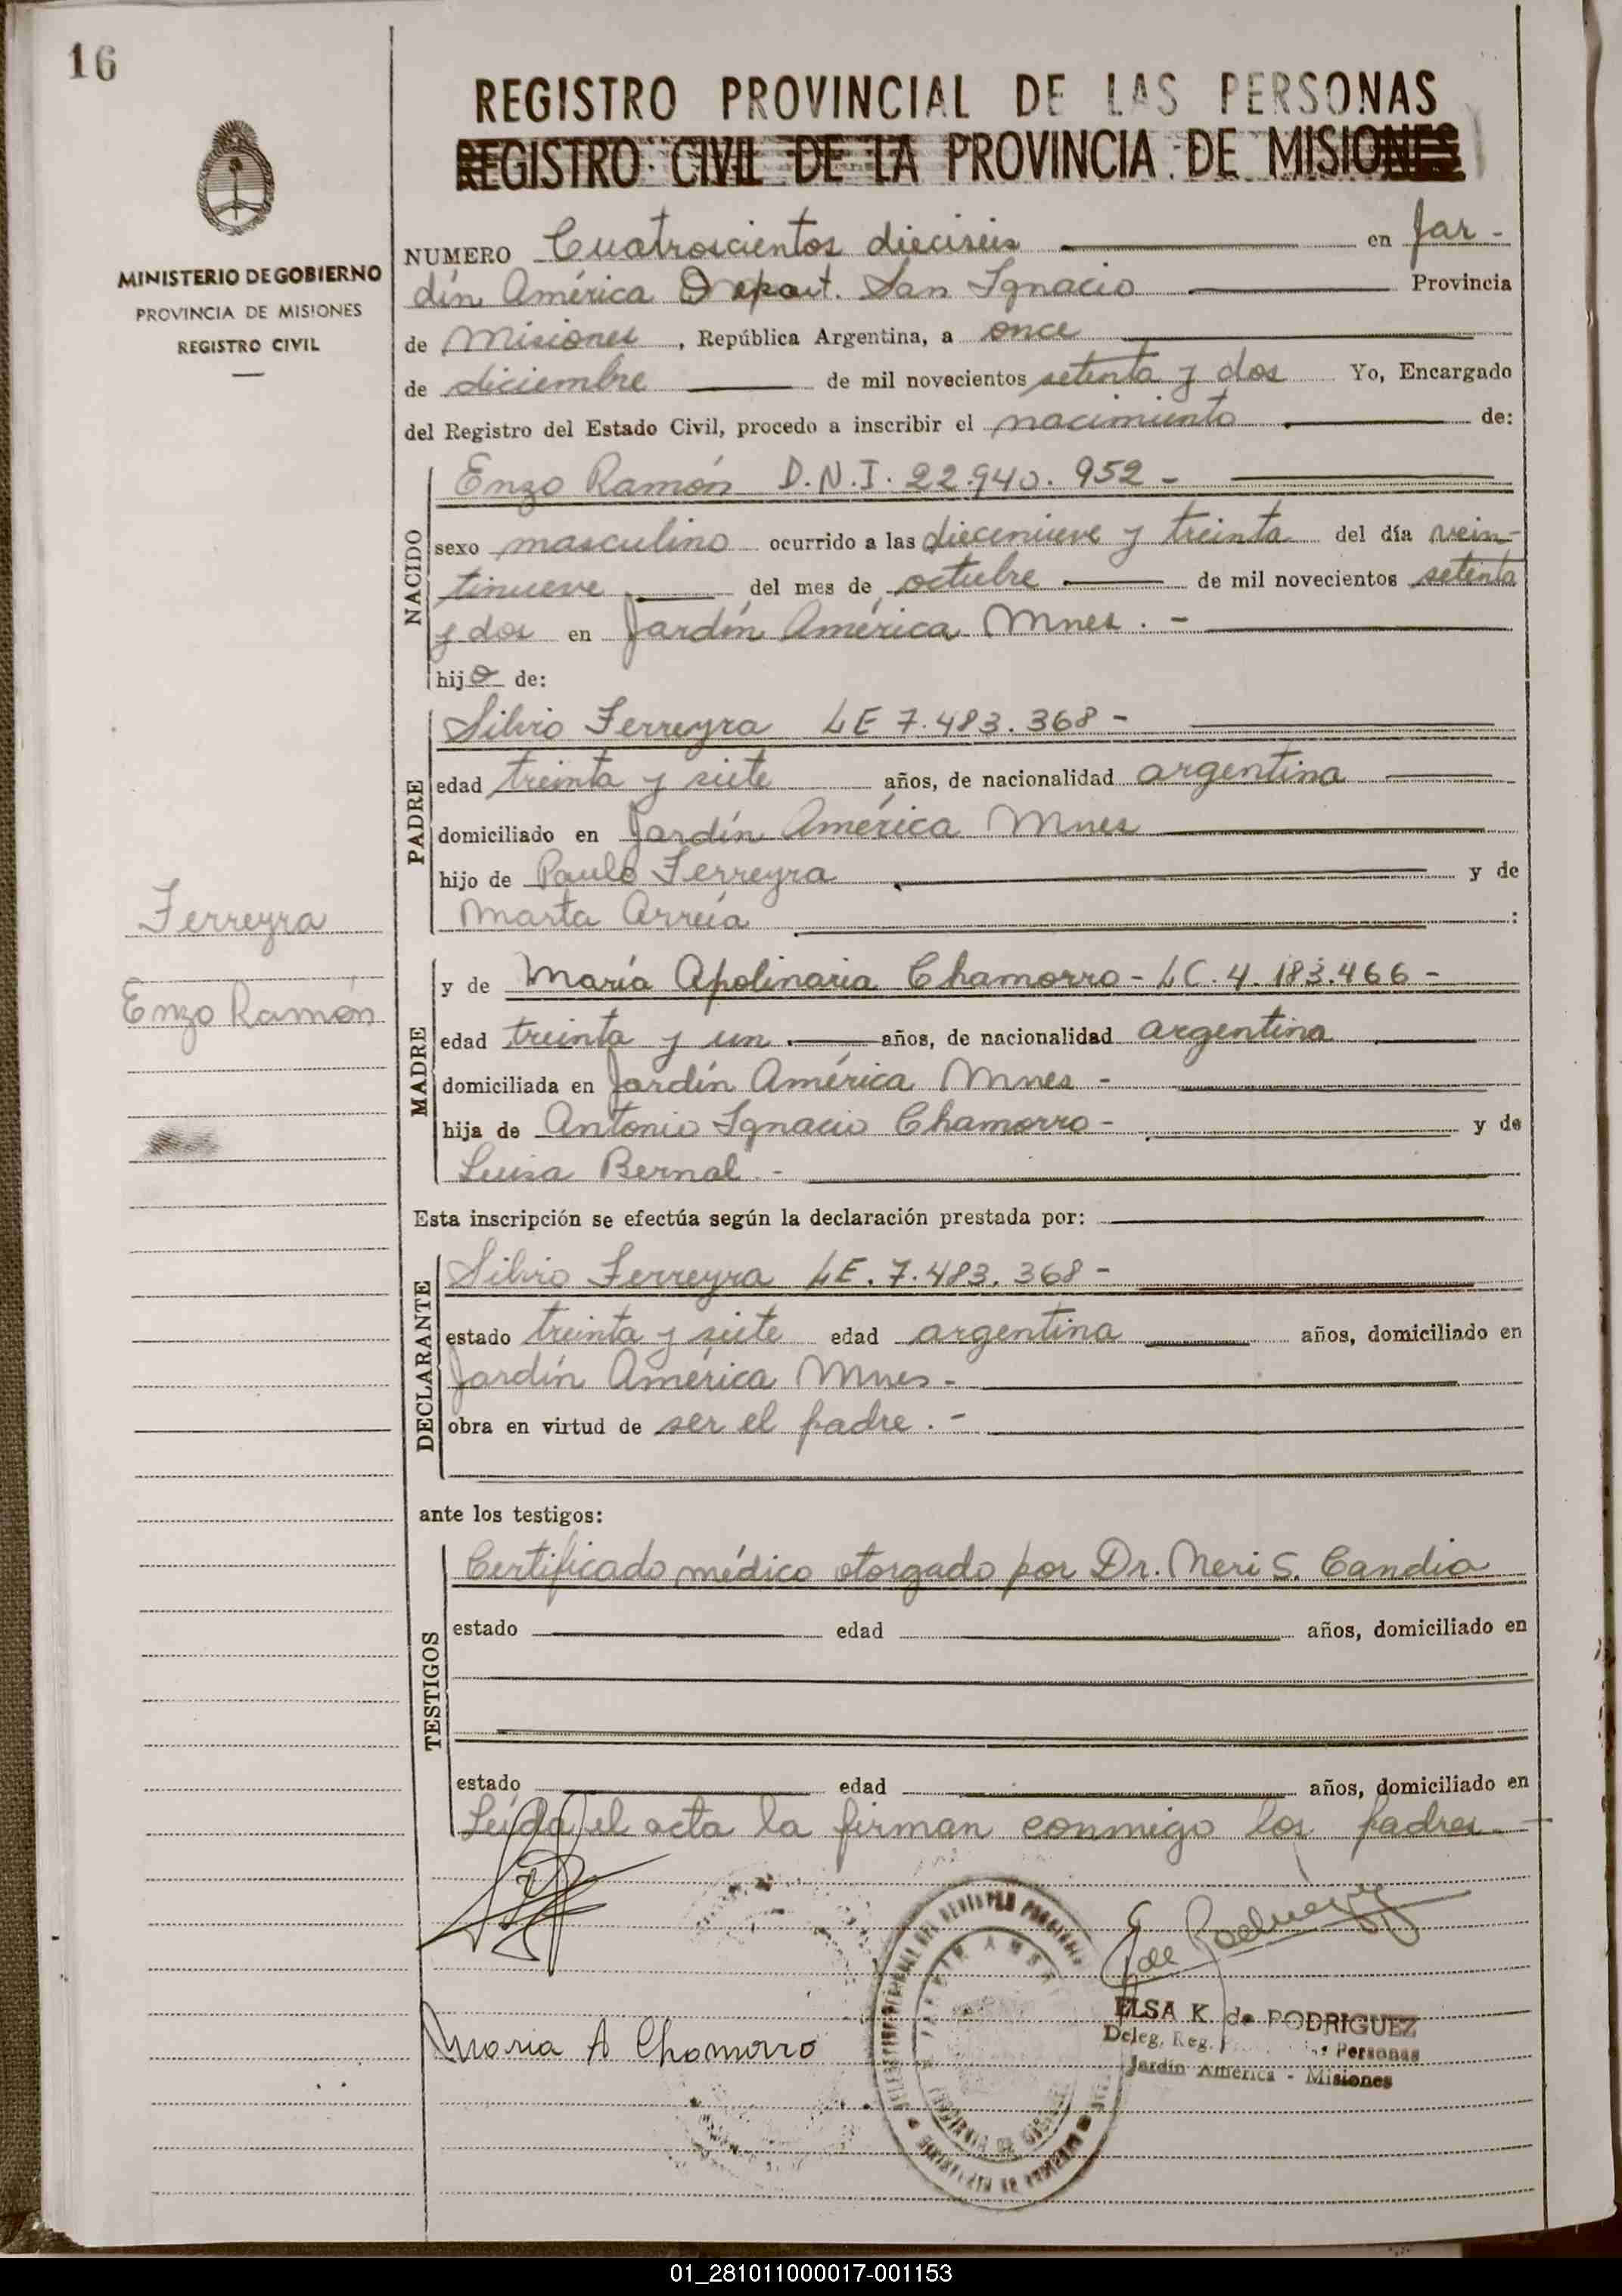 16
REGISTRO PROVINCIAL DE LAS PERSONAS
REGISTRO CIVIL DE LA PROVINCIA DE MISIONES
MINISTERIO DE GOBIERNO
PROVINCIA DE MISIONES
REGISTRO CIVIL
NUMERO Cuatroscientos dieciseis en Jar-
dín América Depart. San Ignacio Provincia
de Misiones, República Argentina, a once
de diciembre de mil novecientos setenta y dos Yo, Encargado
del Registro del Estado Civil, procedo a inscribir el nacimiento de:
NACIDO
Enzo Ramón D.N.I. 22.940.952 -
sexo masculino ocurrido a las diecenueve y treinta del día vein-
tinueve del mes de octubre de mil novecientos setenta
y dos en Jardín América Mnes. -
hijo de:
PADRE
Silvio Ferreyra LE 7.483.368 -
edad treinta y siete años, de nacionalidad argentina
domiciliado en Jardín América Mnes
hijo de Paulo Ferreyra y de
Marta Arreia :
Ferreyra
Enzo Ramón
MADRE
y de María Apolinaria Chamorro - LC. 4.183.466 -
edad treinta y un años, de nacionalidad argentina
domiciliada en Jardín América Mnes -
hija de Antonio Ignacio Chamorro - y de
Luisa Bernal. -
Esta inscripción se efectúa según la declaración prestada por:
DECLARANTE
Silvio Ferreyra LE. 7.483.368 -
estado treinta y siete edad argentina años, domiciliado en
Jardín América Mnes -
obra en virtud de ser el padre. -
ante los testigos:
TESTIGOS
Certificado médico otorgado por Dr. Neri S. Candia
estado edad años, domiciliado en
estado edad años, domiciliado en
Leída el acta la firman conmigo los padres. -
Maria A Chamorro
E de Rodriguez
ELSA K. de RODRIGUEZ
Deleg. Reg. Personas
Jardín América - Misiones
01_281011000017-001153